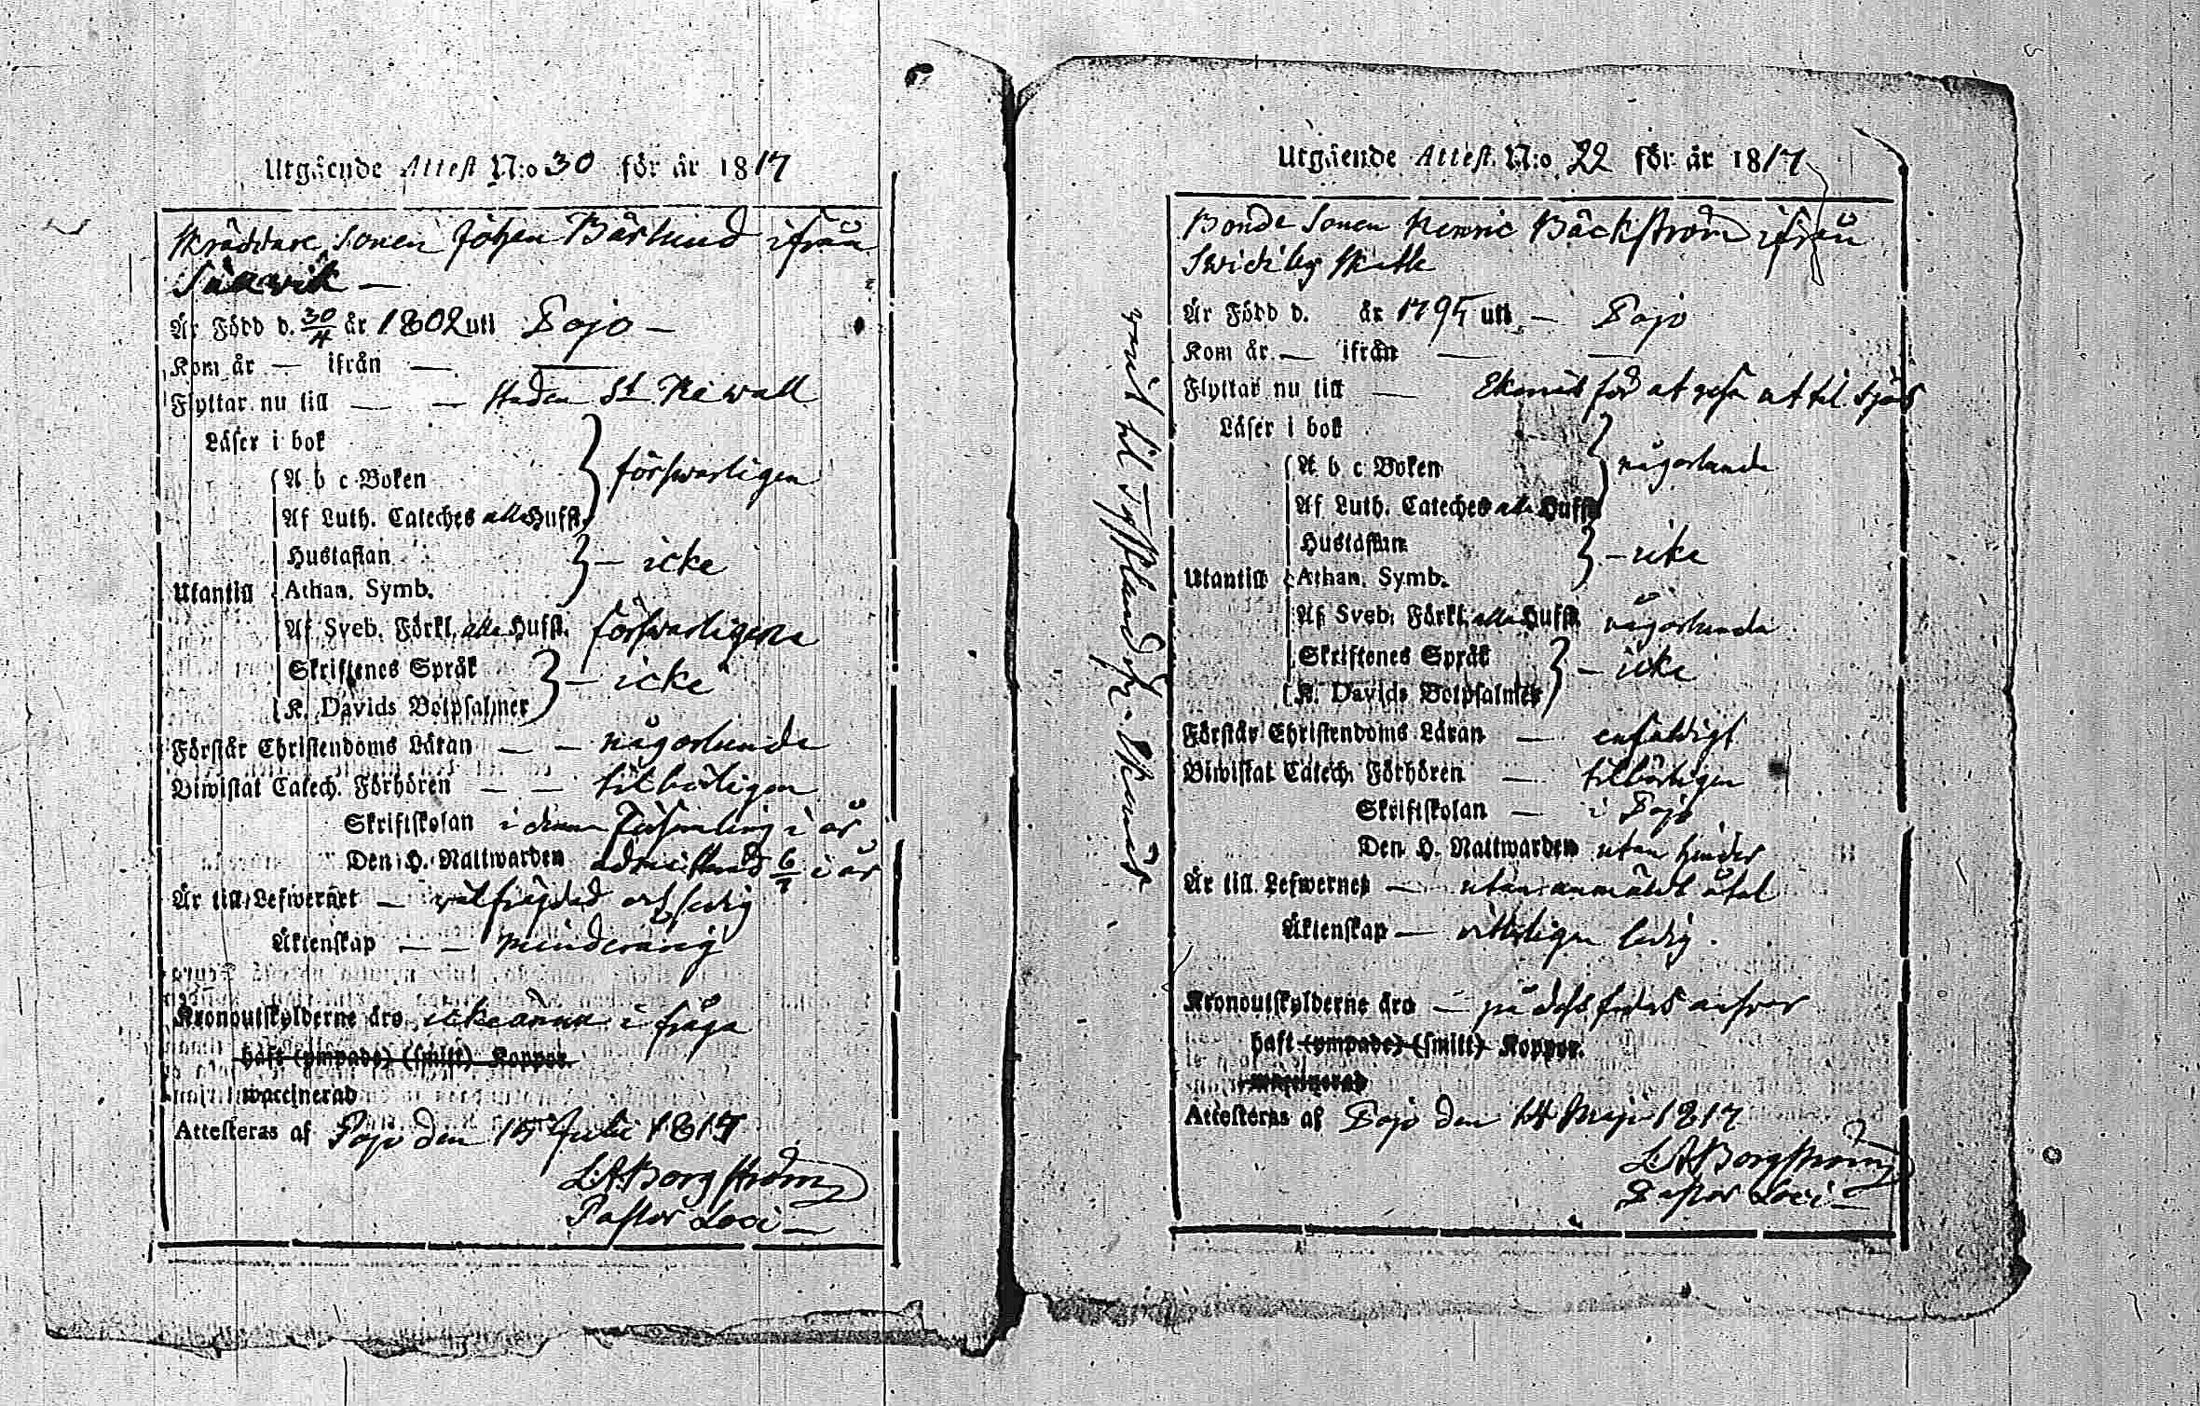 Utgående Attest N:o 30 för år 1817
Skräddare Sonen Johan Bärlund ifrån
Är Född d. 30/4 år 1802 uti Pojo —
Kom år — ifrån —
Flyttar nu till — — Staden
Läser i bok
A b c Boken } förswarligen
Af Luth. Cateches alla Hufst.
Hustaflan } — icke
Utantill Athan. Symb.
Af Sveb. Förkl. alla Hufst. förswarligen
Skriftenes Språk } — icke
K. Davids Botpsalmer
Förstår Christendoms Läran — — någorlunda
Biwistat Catech. Förhören — — tilbörligen
Skriftskolan i denna Församling i år
Den H. Nattwarden admitterad 6/7 i år
Är till Lefwernet — välfräjdad och ledig
Äktenskap — — minderårig
Kronoutskylderne äro icke ännu i fråga
haft (ympade) (smitt) Koppor.
waccinerad
Attesteras af Pojo den 15 Julii 1817
L:A:Borgström
Pastor Loci —
Utgående Attest. N:o 22 för år 1817
Bonde Sonen Henric Bäckström ifrån
Är Född d. år 1795 uti — Pojo
Kom år — ifrån — —
Flyttar nu till — Ekenäs för at resa ut til sjös
Läser i bok
A b c Boken } någorlunda
Af Luth. Cateches alla Hufst.
Hustaflan } — icke
Utantill Athan. Symb.
Af Sveb. Förkl. alla Hufst. någorlunda
Skriftenes Språk } — icke
K. Davids Botpsalmer
Förstår Christendoms Läran — enfaldigt
Biwistat Catech. Förhören — tilbörligen
Skriftskolan — i Pojo
Den H. Nattwarden utan hinder
Är till Lefwernet — utan anmäldt åtal
Äktenskap — vitterligen ledig.
Kronoutskylderne äro — på dess faders ansvar
haft (ympade) (smitt) Koppor.
waccinerad
Attesteras af Pojo den 14 Maji 1817
L:A:Borgström
Pastor Loci —